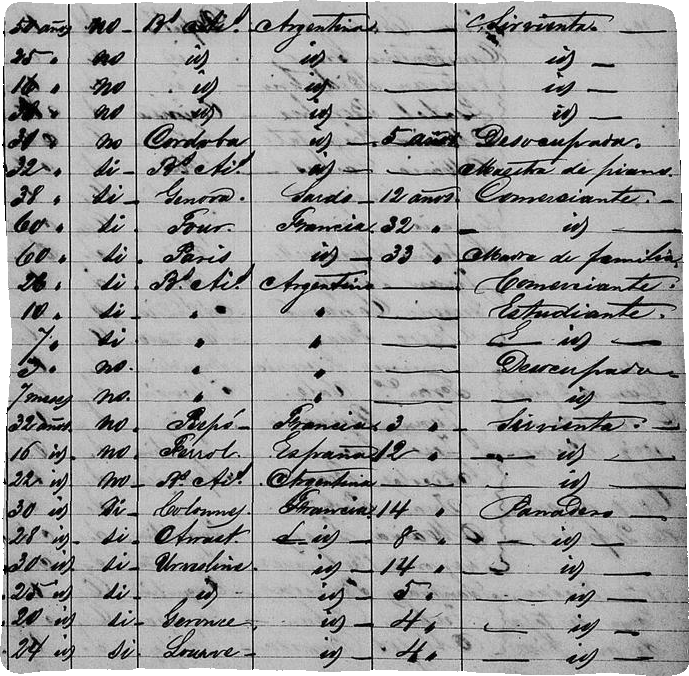 50 años no Bs Ais Argentina Sirvienta.
25 " no id id id
16 " no id id id
no id id id
no Cordoba id 5 años Desocupada.
32 " si Bs Ais id Maestra de piano
38 " si Genova. Sardo 12 años Comerciante.
60 " si Tour. Francia 32 " id
60 " si Paris id 33 " Madre de familia
26 " si Bs Ais Argentina Comerciante.
10 " si " " Estudiante.
7 " si " " id
no. " " Desocupada
7 meses no. " " id
32 años no. Francia 3 " Sirvienta.
16 id no. Ferrol. España 12 " id
22 id no Bs Ais Argentina id
30 id si Francia 14 " Panadero
28 id si id 8 " id
30 id si id 14 " id
25 id si id id 5 " id
20 id si id 4 " id
24 id si id 4 " id